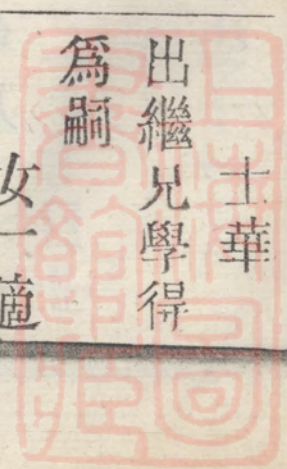 士華
出繼兄學得
爲嗣
女一適